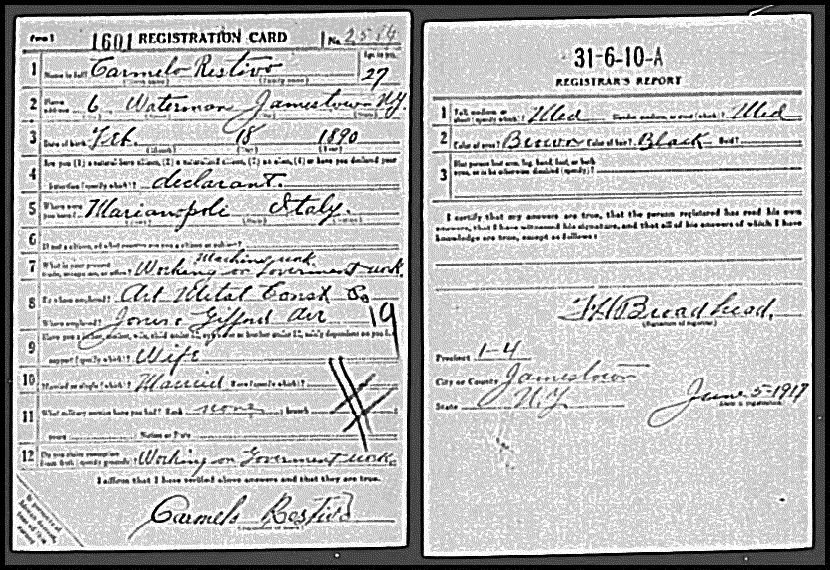 Form 1 1601 REGISTRATION CARD No. 2514
1 Name in full Carmelo Restivo Age, in yrs. 27
(Given name) (Family name)
2 Home address 6 Waterman Jamestown N.Y.
3 Date of birth Feb. 18 1890
(Month) (Day) (Year)
4 Are you (1) a natural-born citizen, (2) a naturalized citizen, (3) an alien, (4) or have you declared your
intention (specify which)? declarant.
5 Where were you born? Marianopoli Italy.
6 If not a citizen, of what country are you a citizen or subject?
Machine work
7 What is your present trade, occupation, or office? Working on Goverment work.
8 By whom employed? Art Metal Const Co
Where employed? Jones & Gifford Ave 19
9 Have you a father, mother, wife, child under 12, or a sister or brother under 12, solely dependent on you for
support (specify which)? Wife
10 Married or single (which)? Married Race (specify which)?
11 What military service have you had? Rank none branch
years Nation or State
12 Do you claim exemption from draft (specify grounds)? Working on Goverment work.
I affirm that I have verified above answers and that they are true.
Carmelo Restivo
31-6-10-A
REGISTRAR'S REPORT
1 Tall, medium, or short (specify which)? Med Slender, medium, or stout (which)? Med
2 Color of eyes? Brown Color of hair? Black Bald?
3 Has person lost arm, leg, hand, foot, or both
eyes, or is he otherwise disabled (specify)?
I certify that my answers are true, that the person registered has read his own
answers, that I have witnessed his signature, and that all of his answers of which I have
knowledge are true, except as follows:
F H Broadhead.
(Signature of registrar)
Precinct 1-4
City or County Jamestown
State N.Y. June 5-1917
(Date of registration)